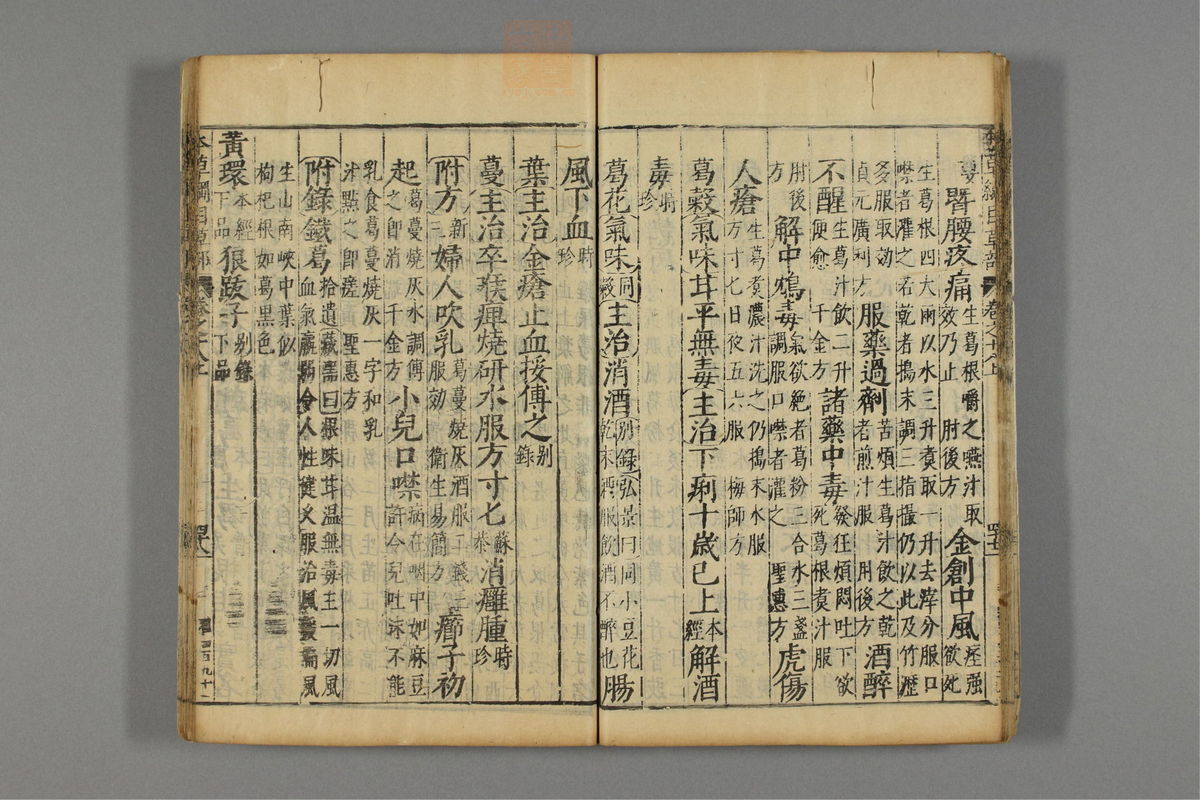 本草綱目草部 卷之十八上
臀腰疼痛 生葛根嚼之嚥汁取效乃止 肘後方 金創中風 痓强欲死
生葛根四大兩以水三升煑取一升去滓分服口噤者灌之若乾者搗末調三指撮仍以此及竹瀝
多服取效 貞元廣利方 服藥過劑 苦煩生葛汁飲之乾者煎汁服 肘後方 酒醉
不醒 生葛汁飲二升便愈 千金方 諸藥中毒 發狂煩悶吐下欲死葛根煑汁服
肘後方 解中鴆毒 氣欲絶者葛粉三合水三盞調服口噤者灌之 聖惠方 虎傷
人瘡 生葛煑濃汁洗之仍搗末水服方寸匕日夜五六服 梅師方
葛穀氣味甘平無毒主治下痢十歲已上 本經 解酒
毒 時珍
葛花氣味 同穀 主治消酒 别錄 弘景曰同小豆花乾末酒服飲酒不醉也 腸
風下血 時珍
葉主治金瘡止血挼傅之 别錄
蔓主治卒喉痺燒研水服方寸匕 蘇恭 消癰腫 時珍
附方 新三 婦人吹乳 葛蔓燒灰酒服二錢三服效 衛生易簡方 癤子初
起 葛蔓燒灰水調傅之即消 千金方 小兒口噤 病在咽中如麻豆許令兒吐沫不能
乳食葛蔓燒灰一字和乳汁點之即瘥 聖惠方
附錄鐵葛 拾遺 藏器曰根味甘温無毒主一切風血氣羸弱令人性健久服治風緩偏風
生山南峽中葉似枸杞根如葛黑色
黃環 本經下品 狼跋子 别錄下品
本草綱目草部 卷之十八上
四百九十